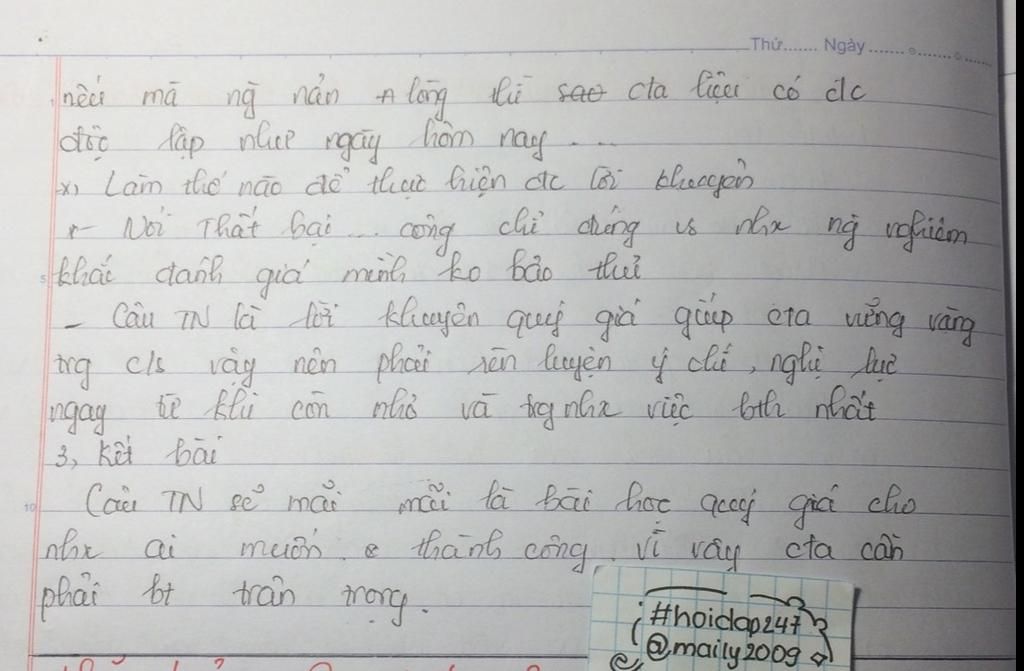 Thứ....... Ngày.................
nếu mà ng nản lòng thì sao cta liệu có đc
độc lập như ngày hôm nay ...
x, Làm thế nào để thực hiện đc lời khuyên
- Nói Thất bại ... cũng chỉ đúng vs nhx ng nghiêm
5 khắc đánh giá mình ko bảo thủ
- Câu TN là lời khuyên quý giá giúp cta vững vàng
trg c/s vậy nên phải rèn luyện ý chí, nghị lực
ngay từ khi còn nhỏ và trg nhx việc bth nhất
3, Kết bài
10 Câu TN sẽ mãi mãi là bài học quý giá cho
nhx ai muốn thành công. vì vậy cta cần
phải bt trân trọng.
#hoidap247
@maily2009